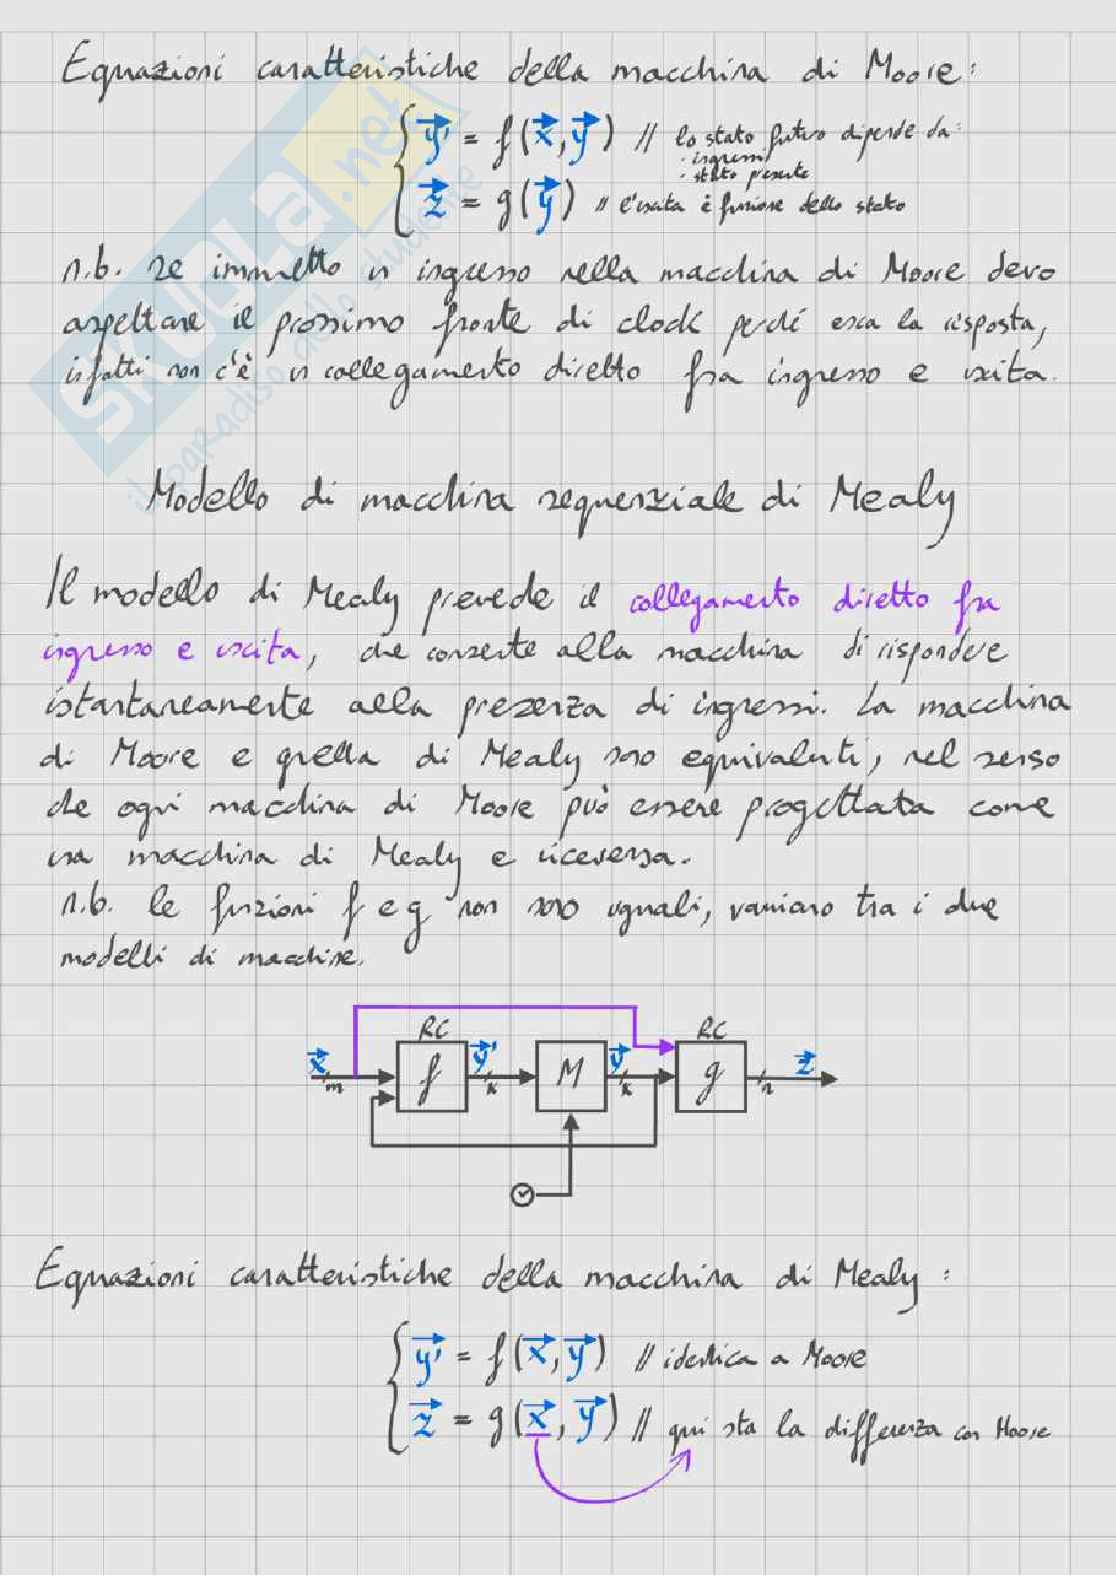 Equazioni caratteristiche della macchina di Moore:
y' = f(x, y) // lo stato futuro dipende da:
· ingressi
· stato presente
z = g(y) // l'uscita è funzione dello stato
n.b. se immetto un ingresso nella macchina di Moore devo
aspettare il prossimo fronte di clock perché esca la risposta,
infatti non c'è un collegamento diretto fra ingresso e uscita.
Modello di macchina sequenziale di Mealy
Il modello di Mealy prevede il collegamento diretto fra
ingresso e uscita, che consente alla macchina di rispondere
istantaneamente alla presenza di ingressi. La macchina
di Moore e quella di Mealy sono equivalenti, nel senso
che ogni macchina di Moore può essere progettata come
una macchina di Mealy e viceversa.
n.b. le funzioni f e g non sono uguali, variano tra i due
modelli di macchine.
RC RC
x m f y' k M y k g n z
Equazioni caratteristiche della macchina di Mealy:
y' = f(x, y) // identica a Moore
z = g(x, y) // qui sta la differenza con Moore
SKUOLA.net
il paradiso dello studente